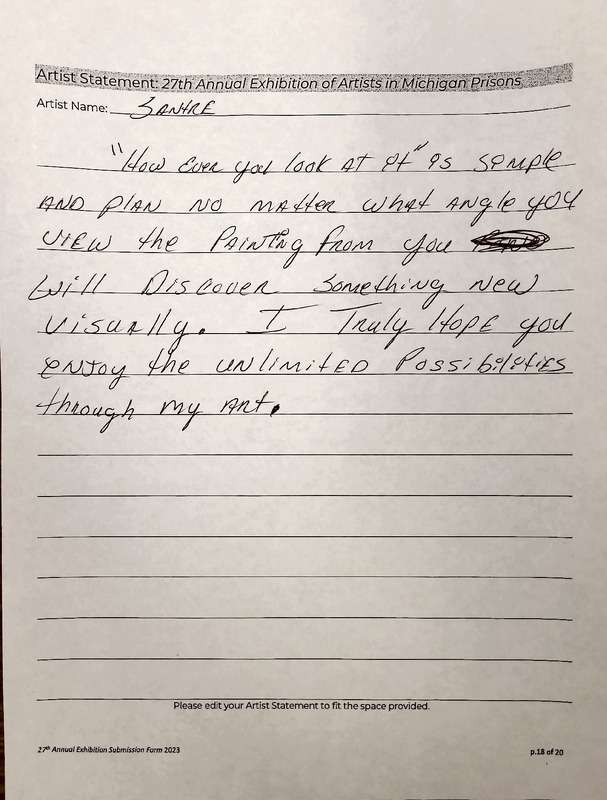 Artist Statement: 27th Annual Exhibition of Artists in Michigan Prisons
Artist Name: SANTRE
"How Ever you look AT it" is simple
AND plAN NO mAtter what ANgle you
VIEW the PAINTINg from you
will Discover Something New
Visually. I Truly HOPE you
enjoy the UNlimiteD Possibilities
through my Art.
Please edit your Artist Statement to fit the space provided.
27th Annual Exhibition Submission Form 2023
p.18 of 20